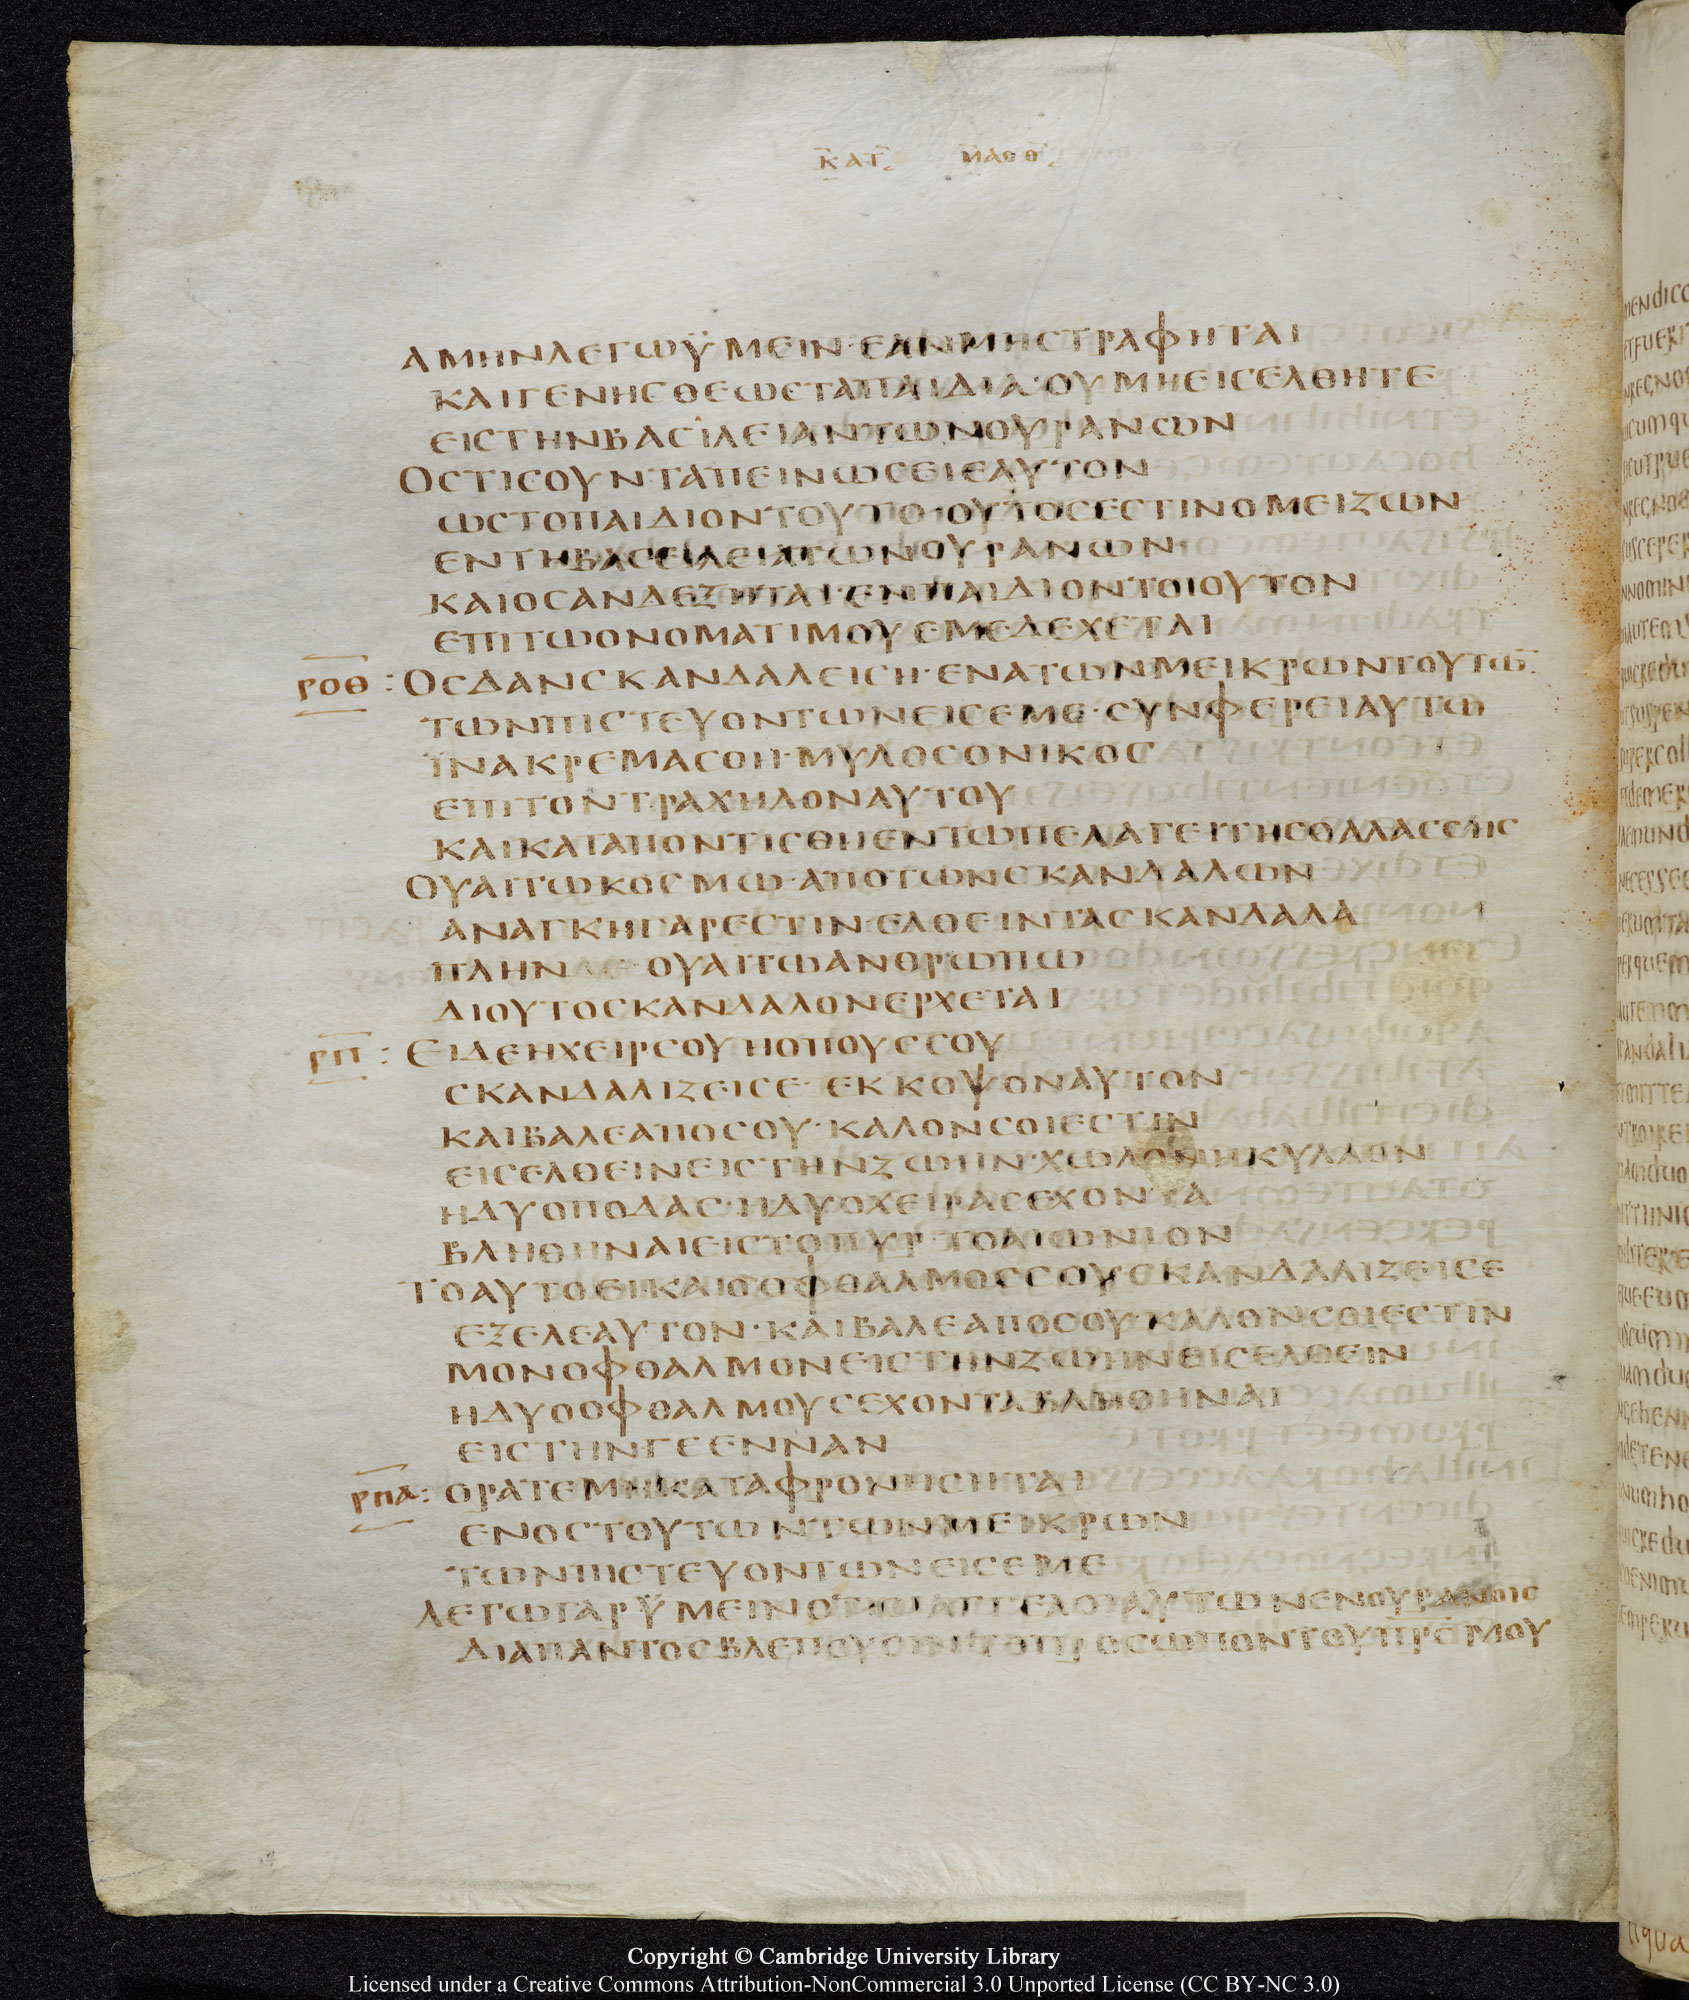 ΚΑΤ ΜΑΘΘ
ΑΜΗΝΛΕΓΩΫΜΕΙΝ·ΕΑΝΜΗΣΤΡΑΦΗΤΑΙ
ΚΑΙΓΕΝΗΣΘΕΩΣΤΑΠΑΙΔΙΑ·ΟΥΜΗΕΙΣΕΛΘΗΤΕ
ΕΙΣΤΗΝΒΑΣΙΛΕΙΑΝΤΩΝΟΥΡΑΝΩΝ
ΟΣΤΙΣΟΥΝ·ΤΑΠΕΙΝΩΣΕΙΕΑΥΤΟΝ
ΩΣΤΟΠΑΙΔΙΟΝΤΟΥΤΟ·ΟΥΤΟΣΕΣΤΙΝΟΜΕΙΖΩΝ
ΕΝΤΗΒΑΣΕΙΛΕΙΑΤΩΝΟΥΡΑΝΩΝ
ΚΑΙΟΣΑΝΔΕΞΗΤΑΙ·ΕΝΠΑΙΔΙΟΝΤΟΙΟΥΤΟΝ
ΕΠΙΤΩΟΝΟΜΑΤΙΜΟΥΕΜΕΔΕΧΕΤΑΙ
ΡΟΘ : ΟΣΔΑΝΣΚΑΝΔΑΛΕΙΣΗ·ΕΝΑΤΩΝΜΕΙΚΡΩΝΤΟΥΤΩ̅
ΤΩΝΠΙΣΤΕΥΟΝΤΩΝΕΙΣΕΜΕ·ΣΥΝΦΕΡΕΙΑΥΤΩ
ΪΝΑΚΡΕΜΑΣΘΗ·ΜΥΛΟΣΟΝΙΚΟΣ
ΕΠΙΤΟΝΤΡΑΧΗΛΟΝΑΥΤΟΥ
ΚΑΙΚΑΤΑΠΟΝΤΙΣΘΗΕΝΤΩΠΕΛΑΓΕΙΤΗΣΘΑΛΑΣΣΗΣ
ΟΥΑΙΤΩΚΟΣΜΩ·ΑΠΟΤΩΝΣΚΑΝΔΑΛΩΝ
ΑΝΑΓΚΗΓΑΡΕΣΤΙΝ·ΕΛΘΕΙΝΤΑΣΚΑΝΔΑΛΑ
ΠΛΗΝΔΕ ΟΥΑΙΤΩΑΝΘΡΩΠΩ
ΔΙΟΥΤΟΣΚΑΝΔΑΛΟΝΕΡΧΕΤΑΙ
ΡΠ : ΕΙΔΕΗΧΕΙΡΣΟΥΗΟΠΟΥΣΣΟΥ
ΣΚΑΝΔΑΛΙΖΕΙΣΕ· ΕΚΚΟΨΟΝΑΥΤΟΝ
ΚΑΙΒΑΛΕΑΠΟΣΟΥ·ΚΑΛΟΝΣΟΙΕΣΤΙΝ
ΕΙΣΕΛΘΕΙΝΕΙΣΤΗΝΖΩΗΝ·ΧΩΛΟΝΗΚΥΛΛΟΝ
ΗΔΥΟΠΟΔΑΣ·ΗΔΥΟΧΕΙΡΑΣΕΧΟΝΤΑ
ΒΛΗΘΗΝΑΙΕΙΣΤΟΠΥΡ·ΤΟΑΙΩΝΙΟΝ
ΤΟΑΥΤΟΕΙΚΑΙΟΟΦΘΑΛΜΟΣΣΟΥΣΚΑΝΔΑΛΙΖΕΙΣΕ
ΕΞΕΛΕΑΥΤΟΝ·ΚΑΙΒΑΛΕΑΠΟΣΟΥ·ΚΑΛΟΝΣΟΙΕΣΤΙΝ
ΜΟΝΟΦΘΑΛΜΟΝΕΙΣΤΗΝΖΩΗΝΕΙΣΕΛΘΕΙΝ
ΗΔΥΟΟΦΘΑΛΜΟΥΣΕΧΟΝΤΑΒΛΗΘΗΝΑΙ
ΕΙΣΤΗΝΓΕΕΝΝΑΝ
ΡΠΑ : ΟΡΑΤΕΜΗΚΑΤΑΦΡΟΝΗΣΗΤΑΙ
ΕΝΟΣΤΟΥΤΩΝΤΩΝΜΕΙΚΡΩΝ
ΤΩΝΠΙΣΤΕΥΟΝΤΩΝΕΙΣΕΜΕ
ΛΕΓΩΓΑΡΫΜΕΙΝΟΤΙΟΙΑΓΓΕΛΟΙΑΥΤΩΝΕΝΟΥΡΑΝΟΙΣ
ΔΙΑΠΑΝΤΟΣΒΛΕΠΟΥΣΙΝΤΟΠΡΟΣΩΠΟΝΤΟΥΠΡΣΜΟΥ
Copyright © Cambridge University Library
Licensed under a Creative Commons Attribution-NonCommercial 3.0 Unported License (CC BY-NC 3.0)